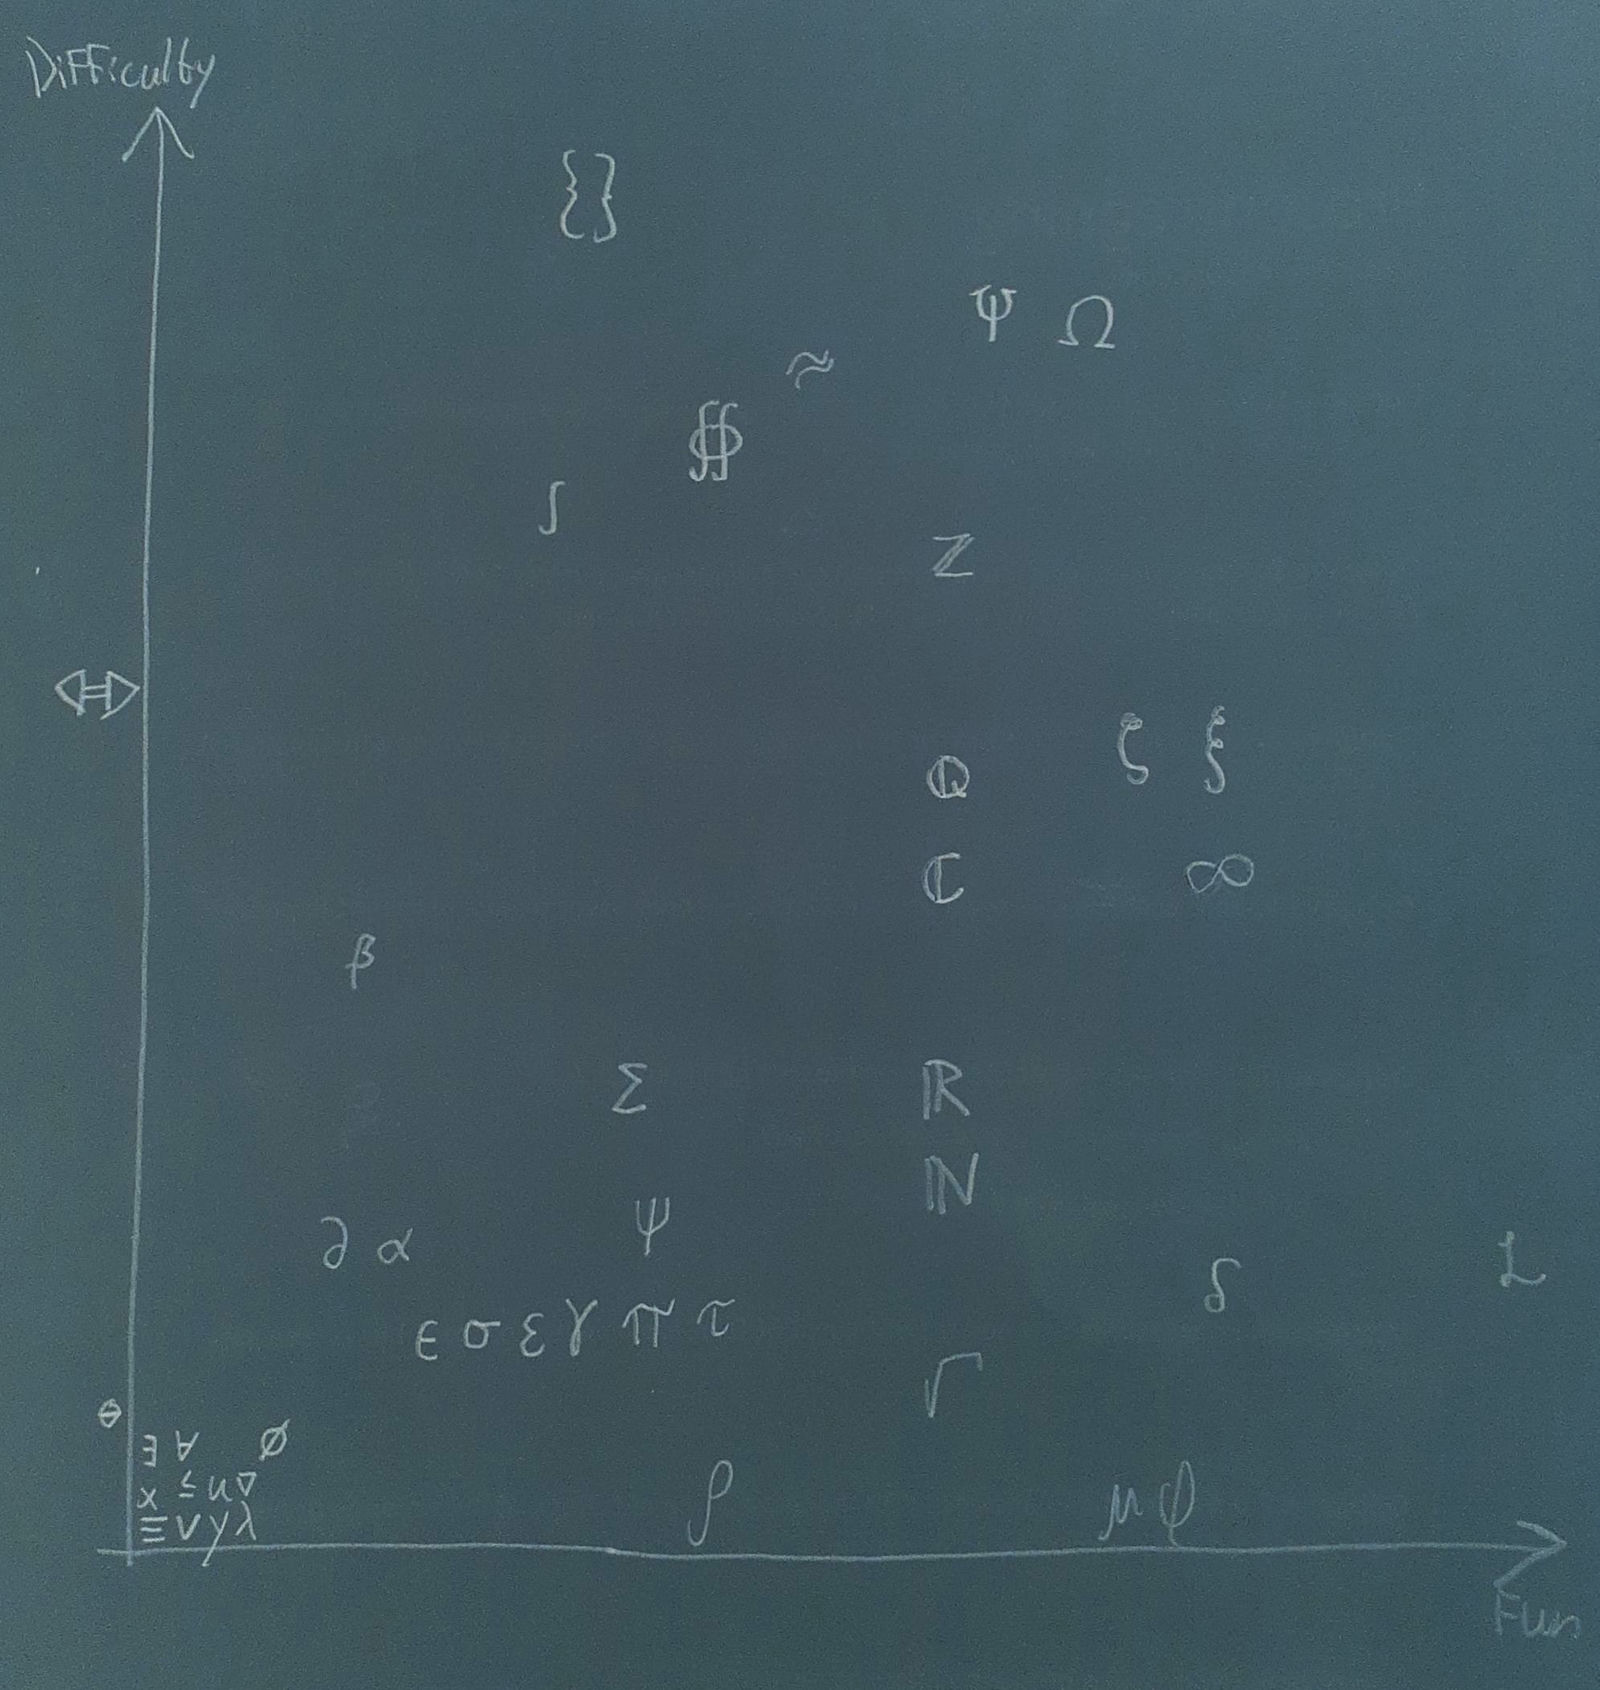 Difficulty
{}
Ψ Ω
≈
∯
∫
ℤ
⇔
ζ ξ
ℚ
ℂ ∞
β
Σ ℝ
ℕ
ψ
∂ α
δ L
ϵ σ ε γ π τ
√
θ
∃ ∀ ∅
x ≤ u ∇
≡ v y λ
ρ μ φ
Fun